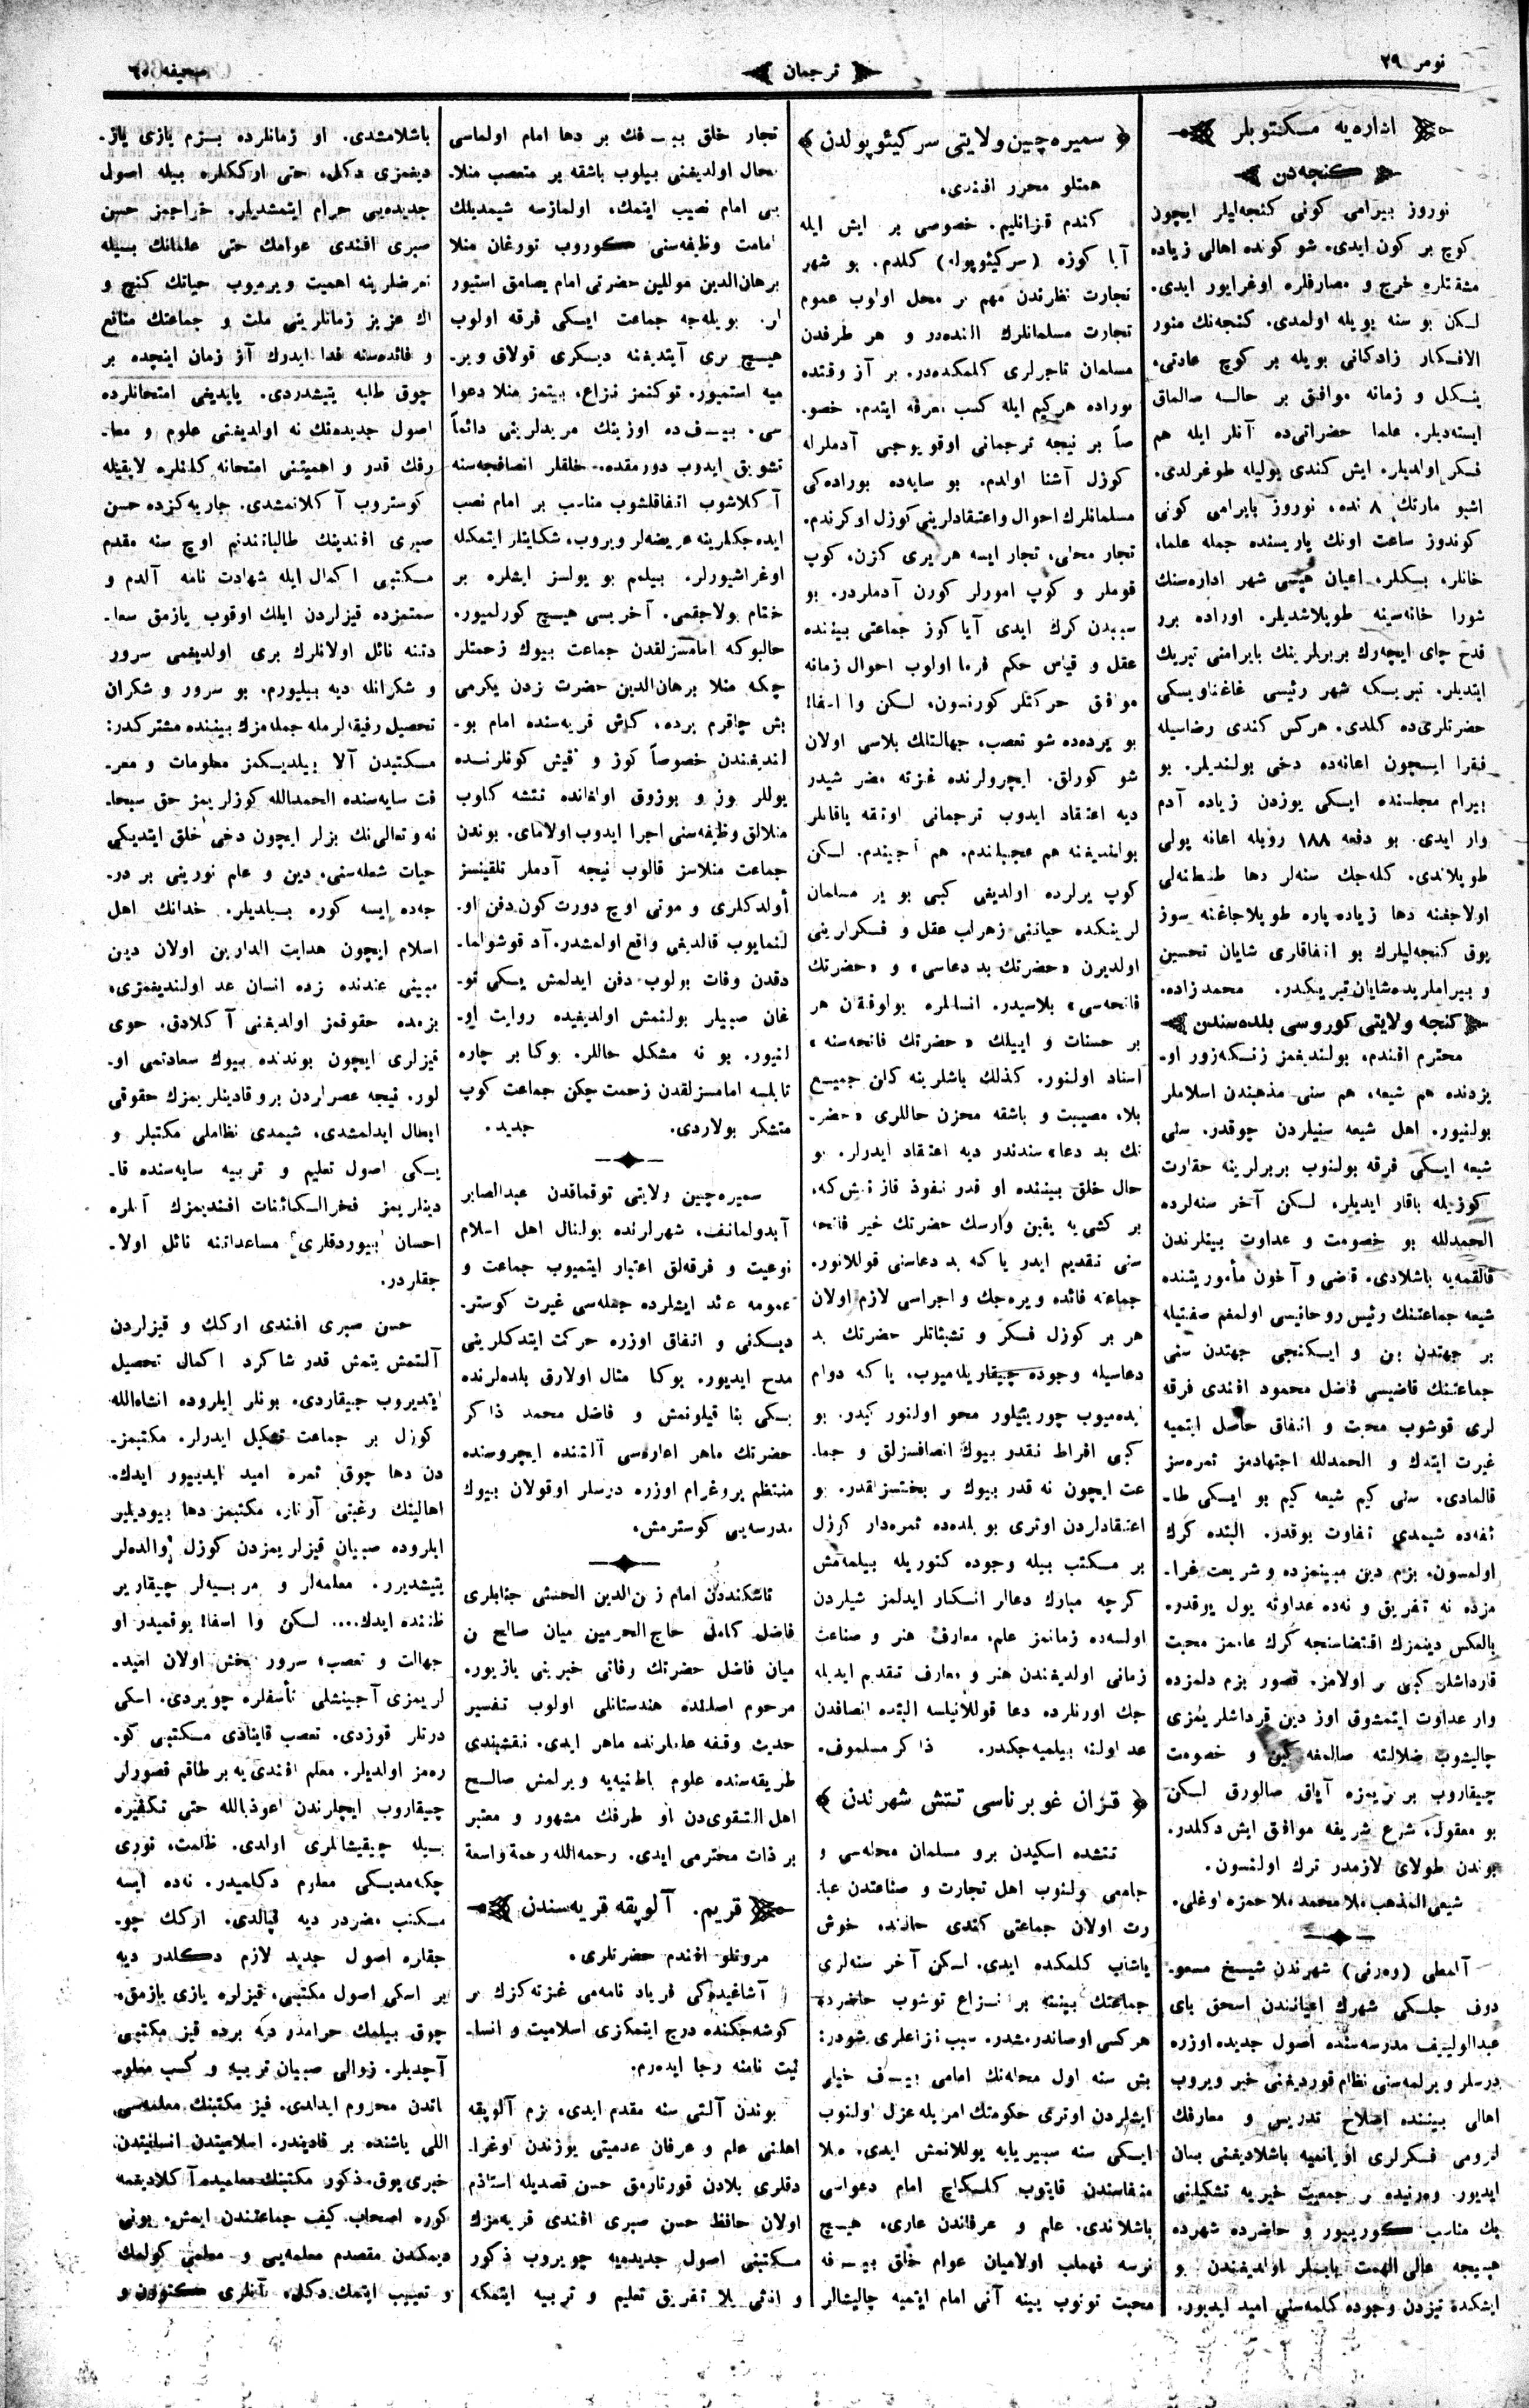 نومر ٢٩
ترجمان
صحیفه ٦٥
اداره‌یه مکتوبلر
کنجه‌دن
نوروز بیرامی کونی کنجه‌لیلر ایچون
کوچ بر کون ایدی. شو کونده اهالی زیاده
مشقتلره خرج و مصارفلره اوغرایور ایدی.
لکن بو سنه بویله اولمدی. کنجه‌نك منور
الافکار زادکانی بویله بر کوچ عادتی،
ینکل و زمانه موافق بر حاله صالماق
ایسته‌دیلر. علما حضراتی‌ده آنلر ایله هم
فکر اولدیلر. ایش کندی یولیله طوغرلدی.
اشبو مارتك ٨ نده، نوروز بایرامی کونی
کوندوز ساعت اونك یاریسنده جمله علما،
خانلر، بکلر، اعیان هپسی شهر اداره‌سنك
شورا خانه‌سینه طوپلاشدیلر. اوراده برر
قدح چای ایچه‌رك بربرلرینك بایرامنی تبریك
ایتدیلر. تبریکه شهر رئیسی غاغناویسکی
حضرتلری‌ده کلدی. هرکس کندی رضاسیله
فقرا ایچون اعانه‌ده دخی بولندیلر. بو
بیرام مجلسنده ایکی یوزدن زیاده آدم
وار ایدی. بو دفعه ١٨٨ روبله اعانه پولی
طوپلاندی. کله‌جك سنه‌لر دها طنطنه‌لی
اولاجغنه دها زیاده پاره طوپلاجاغنه سوز
یوق کنجه‌لیلرك بو اتفاقلری شایان تحسین
و بیراملریده‌شایان تبریکدر. محمدزاده.
کنجه ولایتی کوروسی بلده‌سندن
محترم افندم، بولندیغمز زنکه‌زور او-
یزدنده هم شیعه، هم سنی مذهبندن اسلاملر
بولنیور. اهل شیعه سنیلردن چوقدر. سنی
شیعه ایکی فرقه بولنوب بربرلرینه حقارت
کوزیله باقار ایدیلر. لکن آخر سنه‌لرده
الحمدلله بو خصومت و عداوت بینلرندن
قالقمه‌یه باشلادی. قاضی و آخون مأموریتنده
شیعه جماعتنك رئیس روحانیسی اولمغم صفتیله
بر جهتدن بن و ایکنجی جهتدن سنی
جماعتنك قاضیسی فاضل محمود افندی فرقه
لری قوشوب محبت و اتفاق حاصل ایتمیه
غیرت ایتدك و الحمدلله اجتهادمز ثمره‌سز
قالمادی. سنی کیم شیعه کیم بو ایکی طا-
ئفه‌ده شیمدی تفاوت یوقدر. البتده کرك
اولمسون. بزم دین مبینمزده و شریعت غرا-
مزده نه تفریق و نه‌ده عداوته یول یوقدر.
بالعکس دینمزك اقتضاسنجه کرك عامز محبت
قارداشلق کبی بر اولامز. قصور بزم دلمزده
وار عداوت ایتمشوق اوز دین قرداشلریمزی
چالیشوب ضلالته صالمغه کین و خصومت
چیقاروب بر بریمزه آیاق صالورق لکن
بو معقول، شرع شریفه موافق ایش دکلدر.
بوندن طولای لازمدر ترك اولنسون.
شیعی‌المذهب ملا محمد ملا حمزه اوغلی.
آلمطی (وه‌رنی) شهرندن شیخ مسعو-
دوف جلکی شهرك اعیانندن اسحق بای
عبدالولییف مدرسه‌سنده اصول جدیده اوزره
درسلر ویرلمه‌سنی نظام قوردیغنی خبر ویروب
اهالی بیننده اصلاح تدریس و معارفك
لزومی فکرلری اویانمیه باشلادیغنی بیان
ایدیور. وه‌رنیده بر جمعیت خیریه تشکیلنی
پك مناسب کوریبور و حاضرده شهرده
هیبجه عالی الهمت بایلر اولدیغندن بو
ایشکده تیزدن وجوده کلمه‌سنی امید ایدیور.
سمیره‌چین ولایتی سرکیئوپولدن
همتلو محرر افندی.
کندم قزانلیم. خصوصی بر ایش ایله
آیا کوزه (سرکیئوپوله) کلدم. بو شهر
تجارت نظرندن مهم بر محل اولوب عموم
تجارت مسلمانلرك النده‌در و هر طرفدن
مسلمان تاجرلری کلمکده‌در. بر آز وقتده
بوراده هرکیم ایله کسب معرفه ایتدم. خصو-
صاً بر نیجه ترجمانی اوقویوجی آدملرله
کوزل آشنا اولدم. بو سایه‌ده بوراده‌کی
مسلمانلرك احوال واعتقادلرینی کوزل اوکرندم.
تجار محلی، تجار ایسه هر یری کزن، کوپ
قوملر و کوپ امورلر کورن آدملردر. بو
سببدن کرك ایدی آیا کوز جماعتی بیننده
عقل و قیاس حکم فرما اولوب احوال زمانه
موافق حرکتلر کورنسون. لکن وا اسفا!
بو یرده‌ده شو تعصب، جهالتلك بلاسی اولان
شو کورلق. ایچرولرنده غزته مضر شیدر
دیه اعتقاد ایدوب ترجمانی اوتقه یاقانلر
بولندیغنه هم عجبلندم. هم آجیندم. لکن
کوپ یرلرده اولدیغی کبی بو یر مسلمان
لرینکده حیاتنی زهرلب عقل و فکرلرینی
اولدیرن «حضرتك بد دعاسی» و «حضرتك
فاتحه‌سی» بلاسیدر. انسانلره بولوقغان هر
بر حسنات و اییلك «حضرتك فاتحه‌سنه»
اسناد اولنور. کذلك باشلرینه کلن جمیع
بلا، مصیبت و باشقه محزن حاللری «حضر-
تك بد دعا» سندندر دیه اعتقاد ایدرلر. بو
حال خلق بیننده او قدر نفوذ قازانمش‌که،
بر کشی‌یه یقین وارسك حضرتك خیر فاتحه
سنی تقدیم ایدر یاکه بد دعاسنی قوللانور.
جماعته فائده ویره‌جك و اجراسی لازم اولان
هر بر کوزل فکر و تشبثاتلر حضرتك بد
دعاسیله وجوده چیقاریله‌میوب، یاکه دوام
ایده‌میوب چوریتیلور محو اولنور کیدر. بو
کبی افراط نقدر بیوك انصافسزلق و جما-
عت ایچون نه قدر بیوك بر بختسزلقدر. بو
اعتقادلردن اوتری بو بلده‌ده ثمره‌دار کوزل
بر مکتب بیله وجوده کتوریله بیلمه‌مش
کرچه مبارك دعالر انکار ایدلمز شیلردن
اولسه‌ده زمانمز علم، معارف هنر و صناعت
زمانی اولدیغندن هنر و معارف تقدیم ایدیله
جك اورنلرده دعا قوللانیلسه البته انصافدن
عد اولنه بیلمیه‌جکدر. ذاکر مسلموف.
قزان غوبرناسی تتش شهرندن
تتشده اسکیدن برو مسلمان محله‌سی و
جامعی اولنوب اهل تجارت و صناعتدن عبا-
رت اولان جماعتی کندی حالنده خوش
یاشاب کلمکده ایدی. لکن آخر سنه‌لری
جماعتك بیننه بر نزاع توشوب حاضرده
هرکسی اوصاندرمشدر. سبب نزاعلری شودر:
بش سنه اول محله‌نك امامی خیلی
ایشلردن اوتری حکومتك امریله عزل اولنوب
ایکی سنه سیبریایه یوللانمش ایدی. ملا
منفاسندن قایتوب کلکداچ امام دعواسی
باشلاندی. علم و عرفاندن عاری، هیچ
نرسه فهملب اولامیان عوام خلق
محبت توتوب یینه آنی امام ایتمیه چالیشالر
تجار خلق بر دها امام اولماسی
محال اولدیغنی بیلوب باشقه بر متعصب منلا-
یی امام نصیب ایتمك، اولمازسه شیمدیلك
امامت وظیفه‌سنی کوروب تورغان منلا
برهان‌الدین موللین حضرتی امام یصامق استیور
لر. بویله‌جه جماعت ایکی فرقه اولوب
هیچ بری آیتدیغنه دیکری قولاق ویر-
میه استمیور. توکنمز نزاع، بیتمز منلا دعوا
سی. اوزینك مریدلرینی دائماً
تشویق ایدوب دورمقده. خلقلر انصافجه‌سنه
آکلاشوب اتفاقلشوب مناسب بر امام نصب
ایده‌جکلرینه عریضه‌لر ویروب، شکایتلر ایتمکله
اوغراشیورلر. بیلمم بو یولسز ایشلره بر
ختام بولاجقمی. آخریسی هیچ کورلمیور.
حالبوکه امامسزلقدن جماعت بیوك زحمتلر
چکه منلا برهان‌الدین حضرت زدن یکرمی
بش چاقرم یرده، کباش قریه‌سنده امام بو-
لندیغندن خصوصاً کوز و قیش کونلرنده
یوللر بوز و بوزوق اولغانده تتشه کلوب
منلالق وظیفه‌سنی اجرا ایدوب اولامای. بوندن
جماعت منلاسز قالوب نیجه آدملر تلقینسز
أولدکلری و موتی اوچ دورت کون دفن او-
لنمایوب قالدیغی واقع اولمشدر. آد قوشولما-
دقدن وفات بولوب دفن ایدلمش یکی تو-
غان صبیلر بولنمش اولدیغیده روایت او-
لنیور. بو نه مشکل حاللر. بوکا بر چاره
تابلسه امامسزلقدن زحمت چکن جماعت کوپ
متشکر بولاردی. جدید.
سمیره‌چین ولایتی توقماقدن عبدالصابر
آبدولمانف، شهرلرنده بولنال اهل اسلام
نوعیت و فرقه‌لق اعتبار ایتمیوب جماعت و
عمومه عائد ایشلرده جمله‌سی غیرت کوستر-
دیکنی و اتفاق اوزره حرکت ایتدکلرینی
مدح ایدیور. بوکا مثال اولارق بلده‌لرنده
یکی بنا قیلونمش و فاضل محمد ذاکر
حضرتك ماهر اداره‌سی آلتنده ایچروسنده
منتظم پروغرام اوزره درسلر اوقولان بیوك
مدرسه‌یی کوسترمش.
تاشکنددن امام زین‌الدین الحنفی جنابلری
فاضل کامل حاج‌الحرمین میان صالح بن
میان فاضل حضرتك وفاتی خبرینی یازیور.
مرحوم اصلنده هندستانلی اولوب تفسیر
حدیث وفقه علملرنده ماهر ایدی. نقشبندی
طریقه‌سنده علوم باطنیه‌یه ویرلمش صالح
اهل التقوی‌دن او طرفك مشهور و معتبر
بر ذات محترمی ایدی. رحمه‌الله رحمة واسعة
قریم. آلوپقه قریه‌سندن
مروتلو افندم حضرتلری.
آشاغیده‌کی فریاد نامه‌می غزته‌کزك بر
کوشه‌جکنده درج ایتمکزی اسلامیت و انسا-
نیت نامنه رجا ایده‌رم.
بوندن آلتی سنه مقدم ایدی، بزم آلوپقه
اهلنی علم و عرفان عدمیتی یوزندن اوغرا-
دقلری بلادن قورتارمق حسن قصدیله استاذم
اولان حافظ حسن صبری افندی قریه‌مزك
مکتبنی اصول جدیده‌یه چویروب ذکور
و اناثی بلا تفریق تعلیم و تربیه ایتمکه
باشلامشدی. او زمانلرده بزم یازی یاز-
دیغمزی دکل، حتی ارککلره بیله اصول
جدیده‌یی حرام ایتمشدیلر. خراجمز حسن
صبری افندی عوامك حتی علمانك بیله
تعرضلرینه اهمیت ویرمیوب حیاتك کنج و
اك عزیز زمانلرینی ملت و جماعتك منافع
و فائده‌سنه فدا ایدرك آز زمان ایچده بر
چوق طلبه یتیشدردی. یاپدیغی امتحانلرده
اصول جدیده‌نك نه اولدیغنی علوم و معا-
رفك قدر و اهمیتنی امتحانه کلنلره لایقیله
کوستروب آکلاتمشدی. جاریه‌کزده حسن
صبری افندینك طالباتندنم اوچ سنه مقدم
مکتبی اکمال ایله شهادت نامه آلدم و
سمتمزده قیزلردن ایلك اوقوب یازمق سعا-
دتنه نائل اولانلرك بری اولدیغمی سرور
و شکرانله دیه بیلیورم. بو سرور و شکران
تحصیل رفیقه‌لرمله جمله‌مزك بیننده مشترکدر:
مکتبدن آلا بیلدیکمز معلومات و معر-
فت سایه‌سنده الحمدالله کوزلریمز حق سبحا-
نه وتعالی‌نك بزلر ایچون دخی خلق ایتدیکی
حیات شعله‌سنی، دین و علم نورینی بر در-
جه‌ده ایسه کوره بیلدیلر. خدانك اهل
اسلام ایچون هدایت الدارین اولان دین
مبینی عندنده زده انسان عد اولندیغمزی،
بزه‌ده حقوقمز اولدیغنی آکلادق. حوی
قیزلری ایچون بوندنده بیوك سعادتمی او-
لور. نیجه عصرلردن برو قادینلریمزك حقوقی
ابطال ایدلمشدی، شیمدی نظاملی مکتبلر و
یکی اصول تعلیم و تربیه سایه‌سنده قا-
دینلریمز فخرالکائنات افندیمزك آنلره
احسان بیوردقلری مساعداتنه نائل اولا-
جقلردر.
حسن صبری افندی ارکك و قیزلردن
آلتمش یتمش قدر شاکرد اکمال تحصیل
ایتدیروب چیقاردی. بونلر ایلروده انشاءالله
کوزل بر جماعت تشکیل ایدرلر. مکتبمز-
دن دها چوق ثمره امید ایدییور ایدك.
اهالینك رغبتی آرتار، مکتبمز دها بیودیلیر
ایلروده صبیان قیزلریمزدن کوزل والده‌لر
یتیشدیرر. معلمه‌لر و مربیه‌لر چیقاریر
ظننده ایدك.... لکن وا اسفا! یوقمیدر او
جهالت و تعصب؛ سرور بخش اولان امید-
لریمزی آجینشلی تأسفلره چویردی. اسکی
دردلر قوزدی. تعصب قایناذی مکتبی کو-
ره‌مز اولدیلر. معلم افندی‌یه بر طاقم قصورلر
چیقاروب ایچلرندن اعوذبالله حتی تکفیره
بیله چیقیشانلری اولدی. ظلمت، نوری
چکه‌مدیکی معلوم دکلمیدر. نه‌ده ایسه
مکتب مضردر دیه قپالدی. ارکك چو-
جقلره اصول جدید لازم دکلدر دیه
بر اسکی اصول مکتبی، قیزلره یازی یازمق،
چوق بیلمك حرامدر دیه برده قیز مکتبی
آچدیلر. زوالی صبیان تربیه و کسب معلوم-
اتدن محروم ایدلدی. قیز مکتبنك معلمه‌سی
اللی یاشنده بر قادیندر. اسلامیتدن انسانیتدن
خبری یوق. مذکور مکتبنك معلمیده آکلادیغمه
کوره اصحاب کیف جماعتندن ایمش، بونی
دیمکدن مقصدم معلمه‌یی و معلمی کولمك
و تعییب ایتمك دکل، آنلری کتورن و